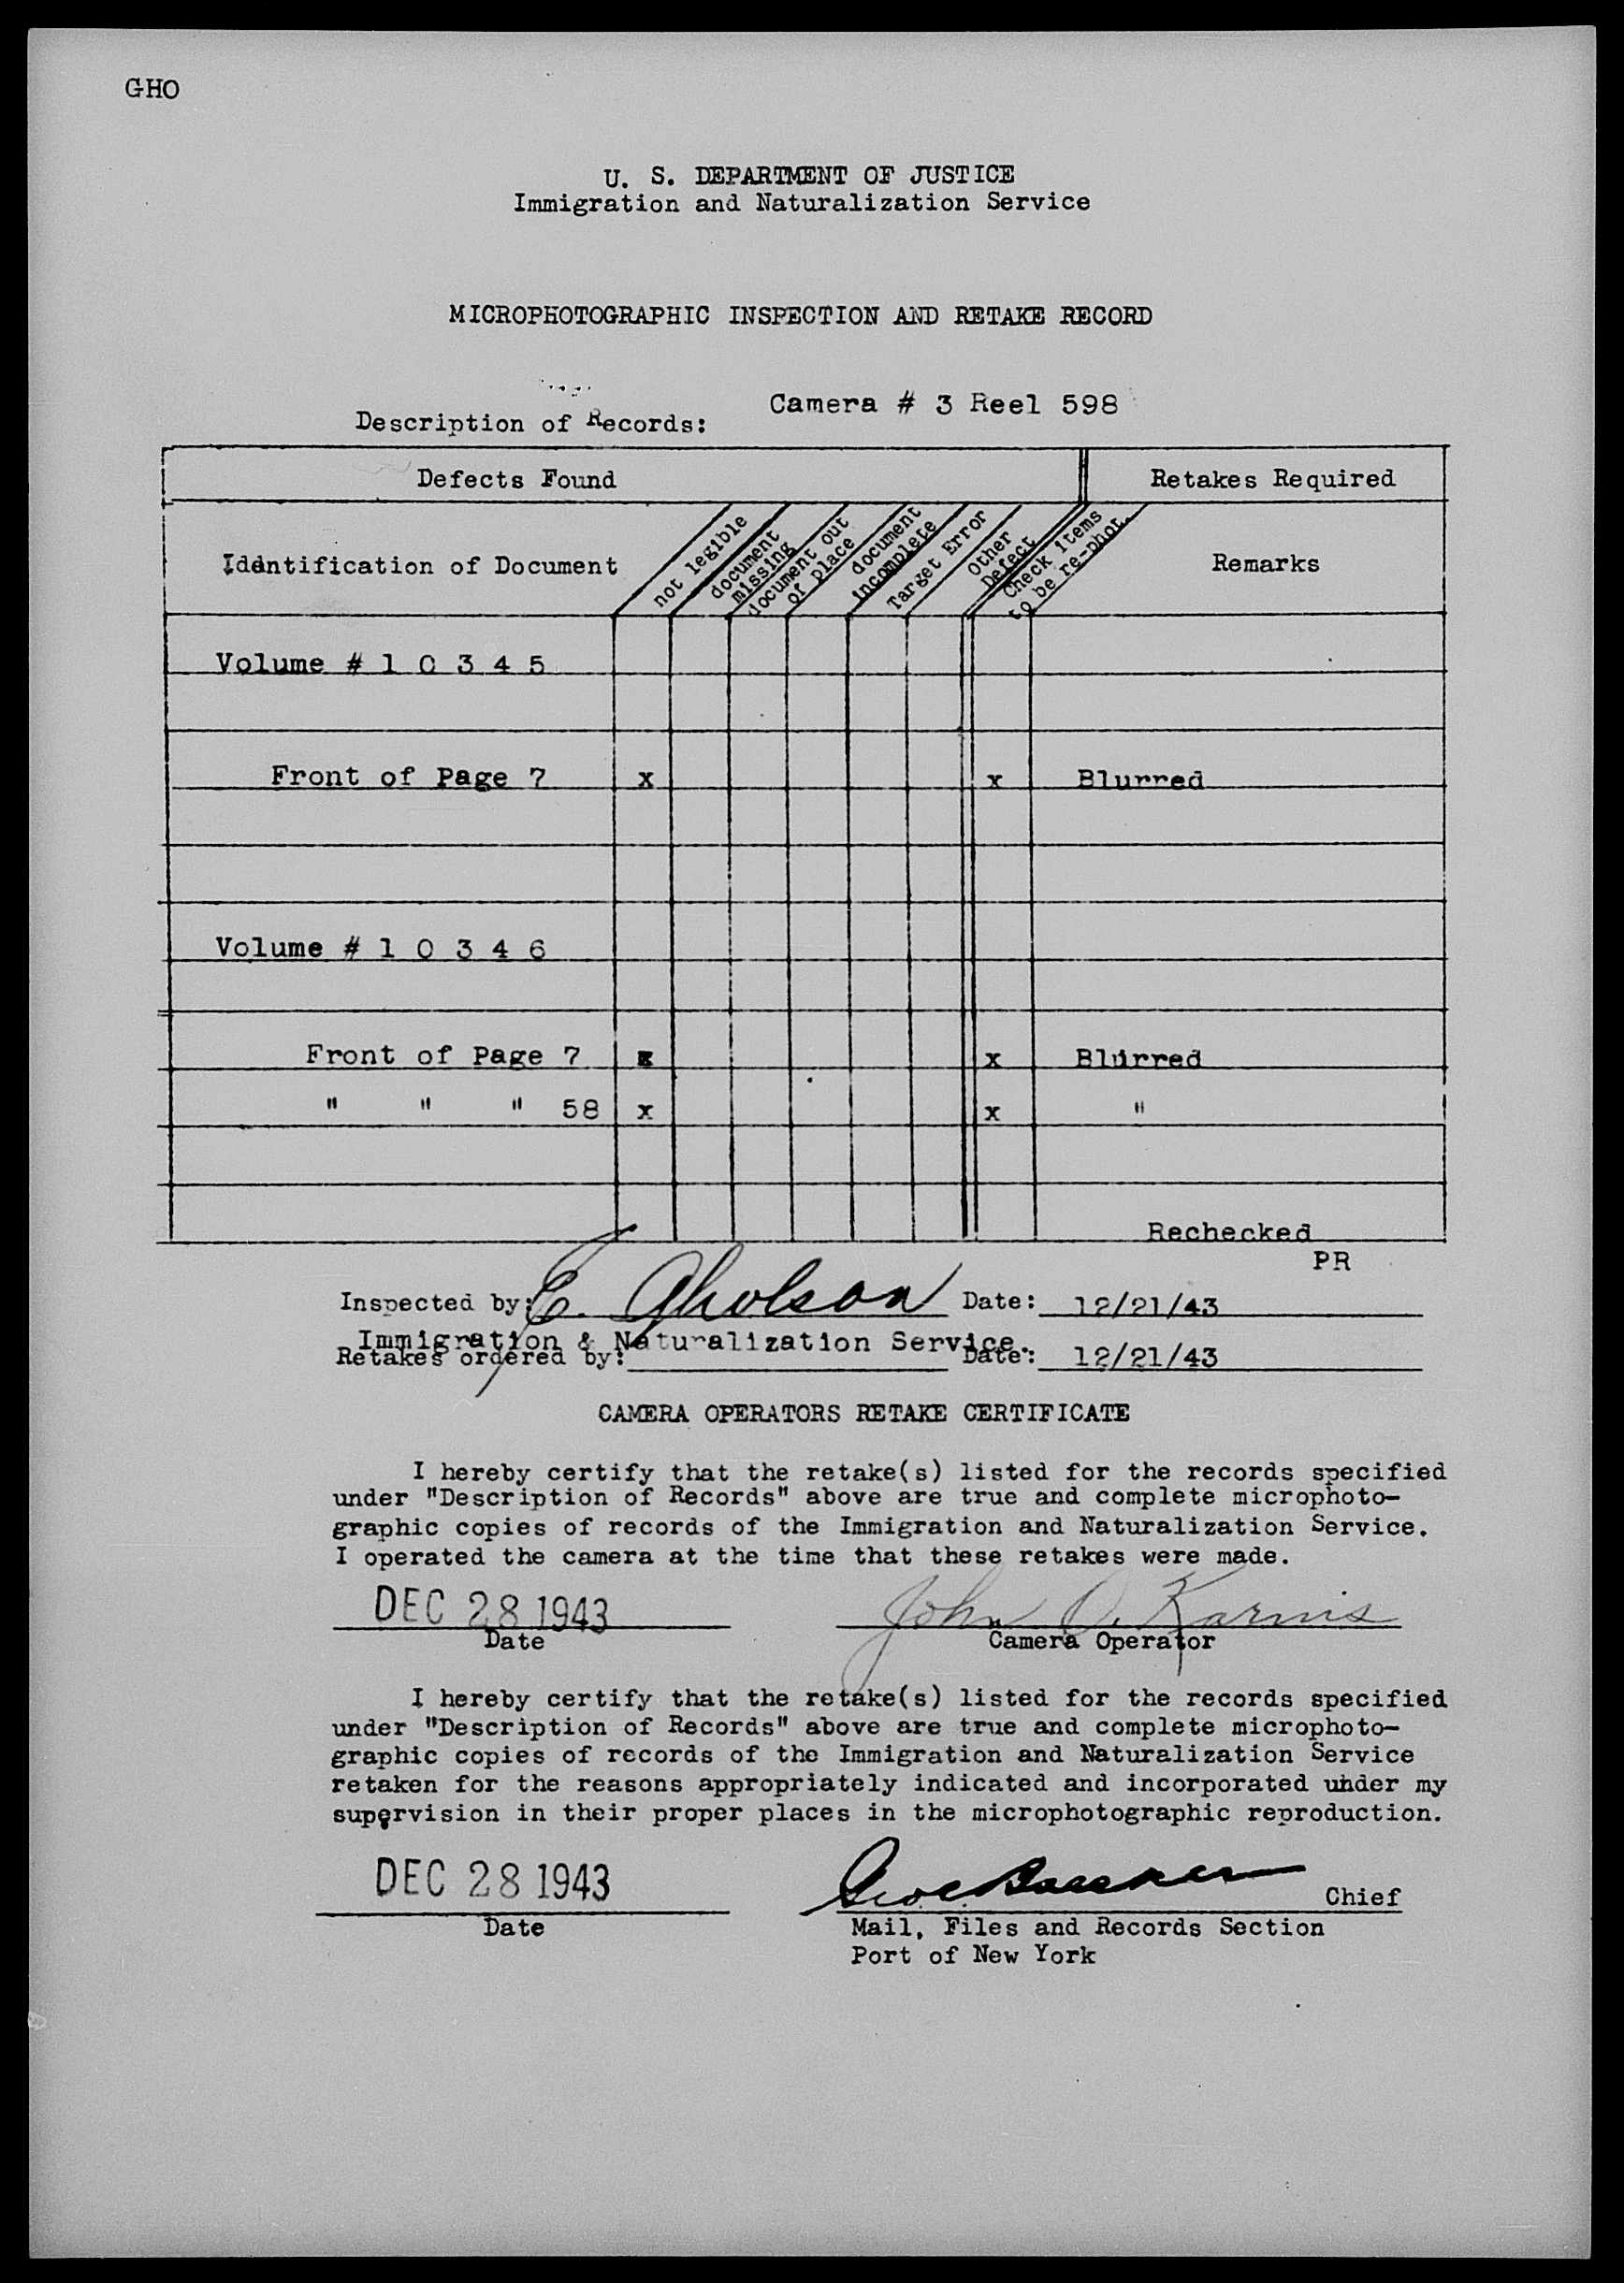 GHO
U. S. DEPARTMENT OF JUSTICE
Immigration and Naturalization Service
MICROPHOTOGRAPHIC INSPECTION AND RETAKE RECORD
Description of Records: Camera # 3 Reel 598
Defects Found Retakes Required
Identification of Document
not legible
document missing
document out of place
document incomplete
Target Error
Other Defect
Check items to be re-phot.
Remarks
Volume # 1 0 3 4 5
Front of Page 7 x x Blurred
Volume # 1 0 3 4 6
Front of Page 7 x x Blurred
" " " 58 x x "
Rechecked
PR
Inspected by: E. Gholson Date: 12/21/43
Immigration & Naturalization Service.
Retakes ordered by: Date: 12/21/43
CAMERA OPERATORS RETAKE CERTIFICATE
I hereby certify that the retake(s) listed for the records specified
under "Description of Records" above are true and complete microphoto-
graphic copies of records of the Immigration and Naturalization Service.
I operated the camera at the time that these retakes were made.
DEC 28 1943 John O. Karins
Date Camera Operator
I hereby certify that the retake(s) listed for the records specified
under "Description of Records" above are true and complete microphoto-
graphic copies of records of the Immigration and Naturalization Service
retaken for the reasons appropriately indicated and incorporated under my
supervision in their proper places in the microphotographic reproduction.
DEC 28 1943 Chief
Date Mail, Files and Records Section
Port of New York